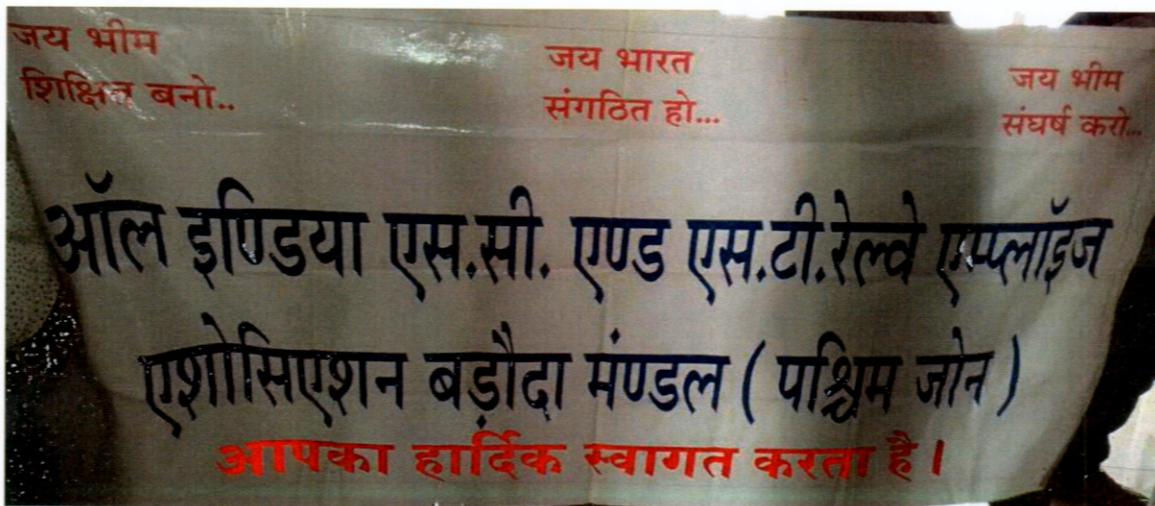 जय भीम
शिक्षित बनो..
जय भारत
संगठित हो...
जय भीम
संघर्ष करो...
ऑल इण्डिया एस.सी. एण्ड एस.टी.रेल्वे एम्प्लॉइज
एशोसिएशन बड़ौदा मंण्डल ( पश्चिम जोन )
आपका हार्दिक स्वागत करता है।